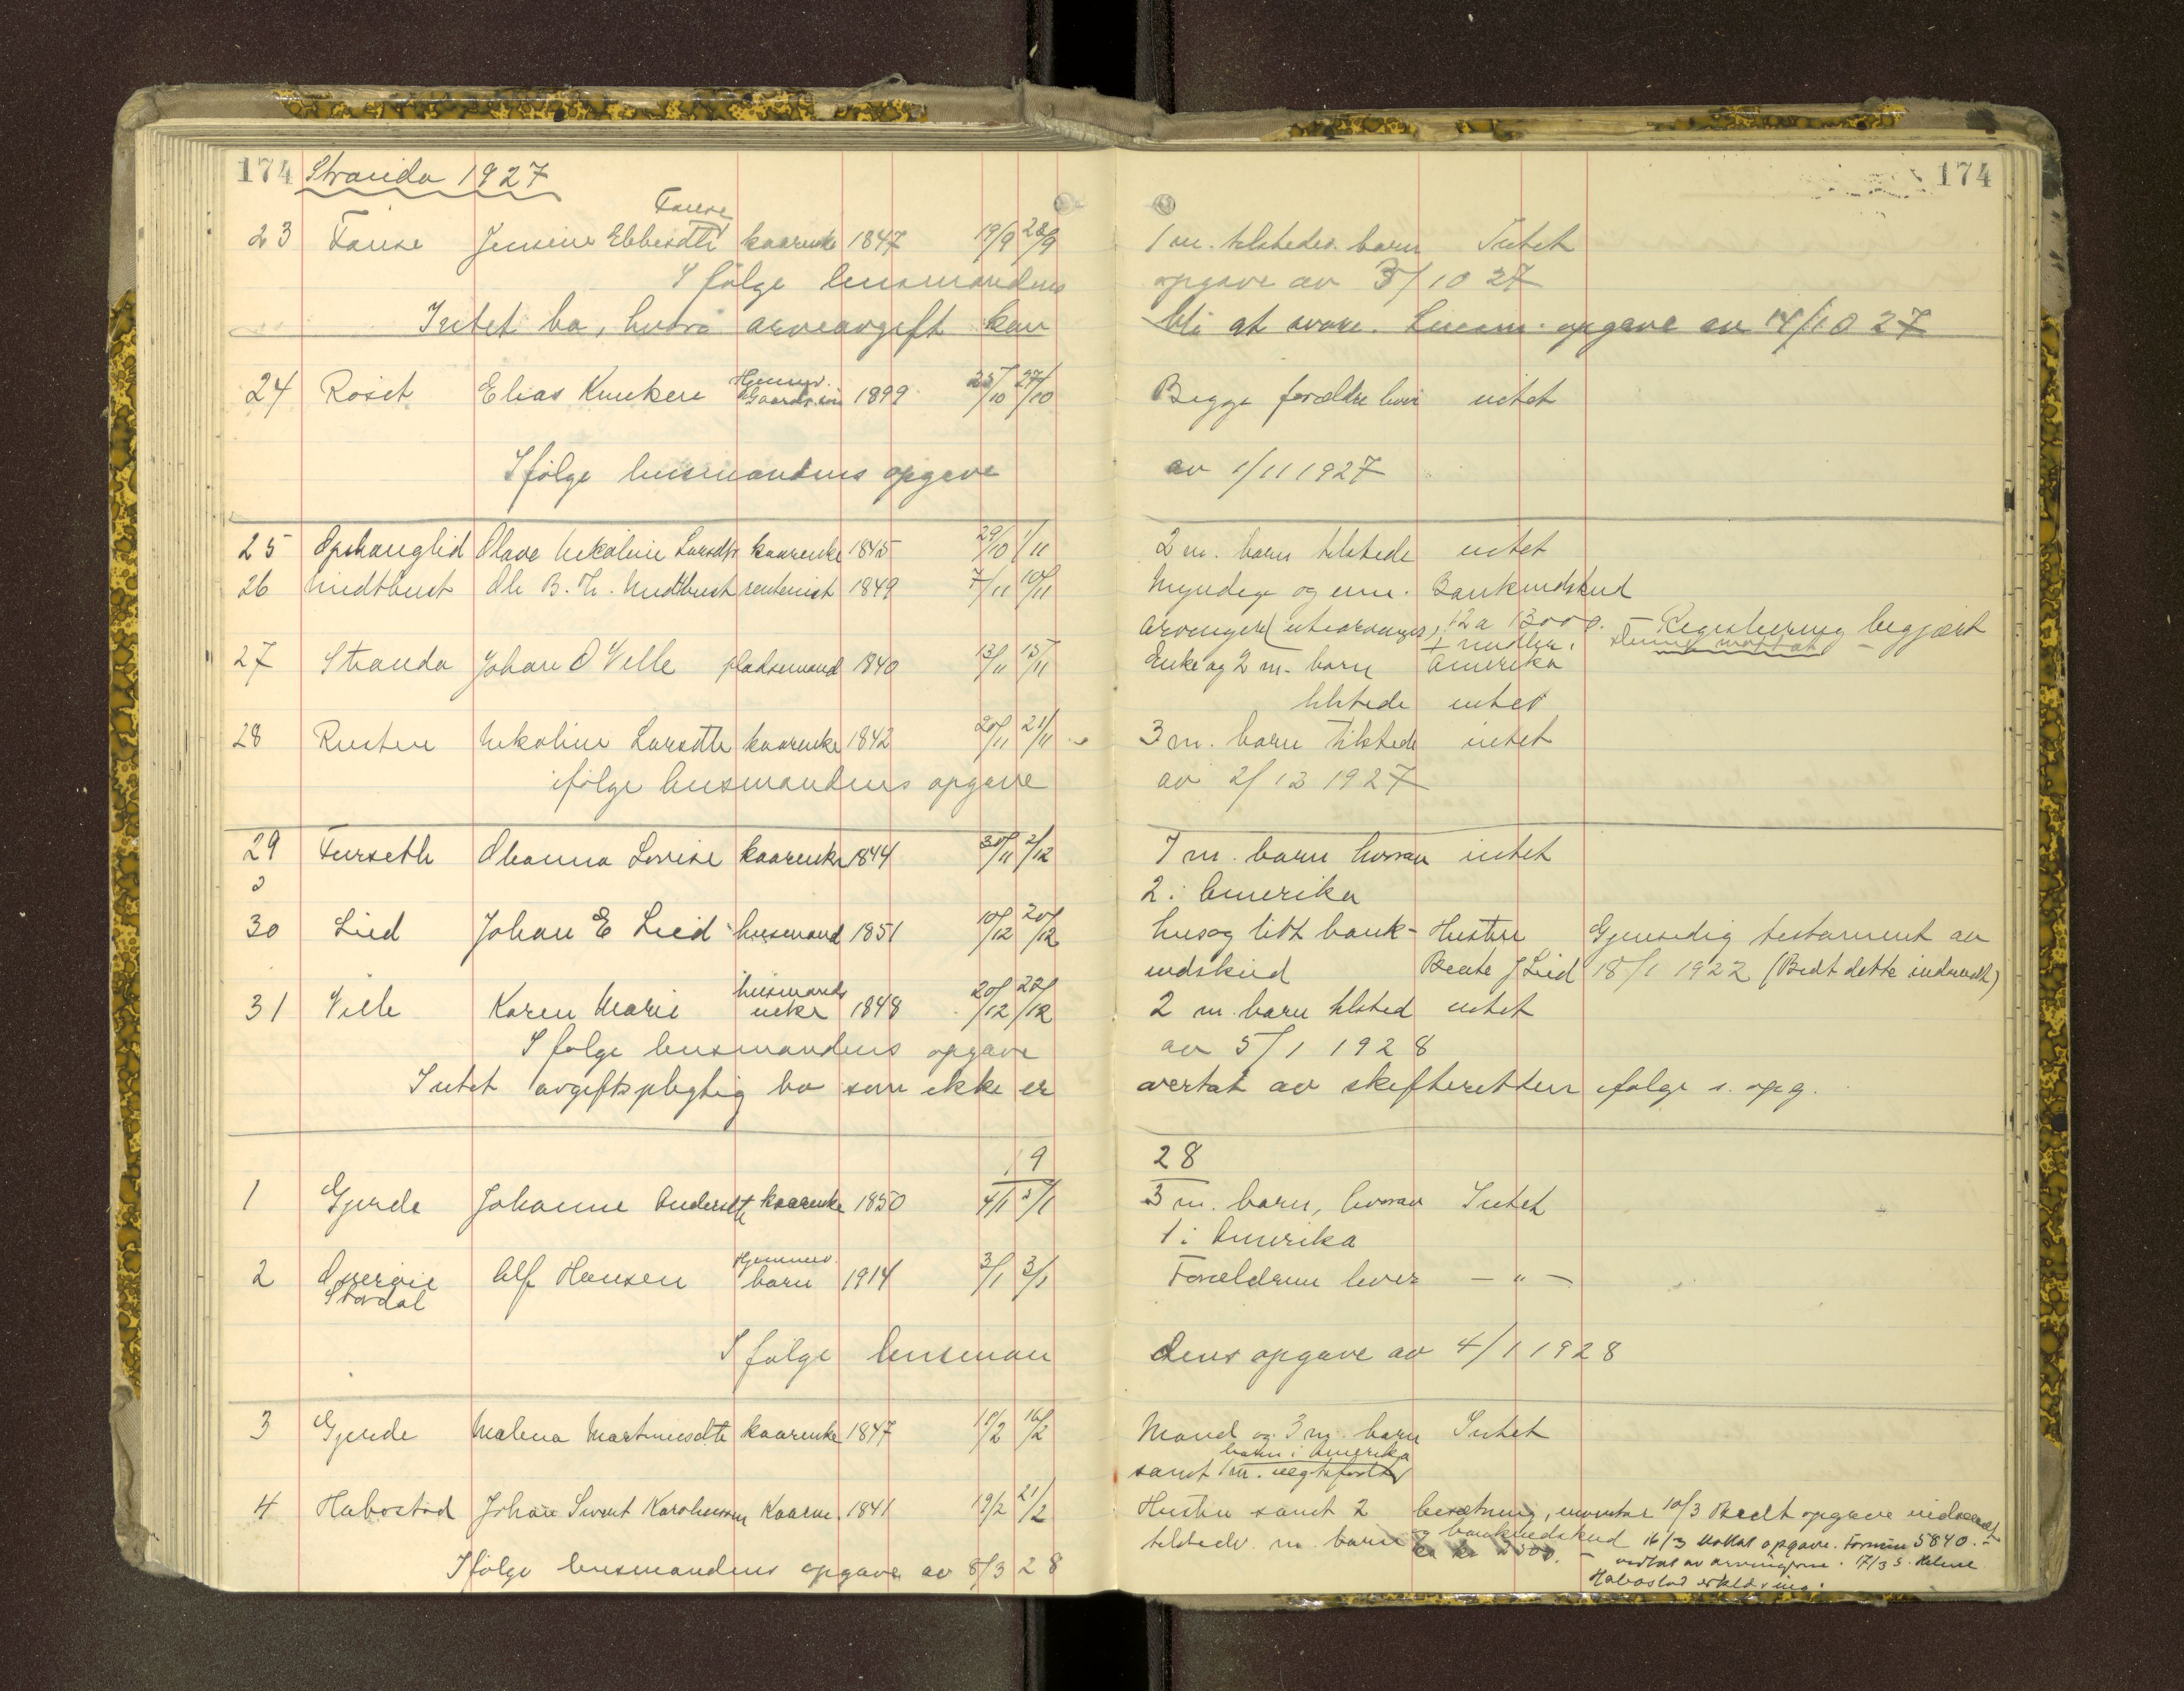 174 Stranda 1927
174
Fause
23 Fause Jensine Ebbesdtr kaarenke 1847 19/9 28/9 1 m. tilstedev. barn Intet
I følge lensmandens opgave av 3/10 27
Intet bo, hvorav arveavgift kan bli at svare. Lensm. opgave av 14/10 27
24 Røset Elias Knutsen Hjemmev. Gaards.søn 1899 25/10 27/10 Begge forældre lever intet
Ifølge lensmandens opgave av 1/11 1927
25 Opshauglid Olave Nikoline Larsdtr kaarenke 1845 29/10 1/11 2 m. barn tilstede intet
26 Midtbust Ole B. K. Midtbust rentenist 1849 7/11 10/11 Myndige og umn. Bankindskud
arvinger (utearvinger) 12 a 13000. - Registrering begjært
27 Stranda Johan O Velle pladsemand 1840 13/11 15/11 Enke og 2 m. barn Amerika
tilstede intet
28 Rusten Nikoline Larsdtr kaarenke 1842 20/11 21/11 3 m. barn tilstede intet
ifølge lensmandens opgave av 2/12 1927
29 Furseth Olianna Lovise kaarenke 1844 30/11 2/12 7 m. barn hvorav intet
2 i Amerika
30 Lied Johan E Lied husmand 1851 10/12 20/12 hus og litt bank- Hustru Gjensidig testament av
indskud Beate J Lied 18/1 1922 (Bedt dette indsendt)
31 Velle Karen Marie husmands enke 1848 20/12 22/12 2 m. barn tilsted intet
I følge lensmandens opgave av 5/1 1928
Intet avgiftspligtig bo som ikke er overtat av skifteretten ifølge s. opg.
19 28
1 Gjerde Johanne Andersdtr kaarenke 1850 4/1 5/1 3 m. barn, hvorav Intet
1 i Amerika
2 Overøie Stordal Alf Hansen Hjemmev. barn 1914 3/1 3/1 Forældrene lever - " -
I følge lensmandens opgave av 4/1 1928
3 Gjerde Malena Martinusdtr kaarenke 1847 10/2 16/2 Mand og 3 m. barn Intet
barn i Amerika
samt 1 m.
4 Habostad Johan Sivert Karolussen Kaarm. 1841 19/2 21/2 Hustru samt 2 besætning, inventar 10/3 Bedt opgave indsendt
tilstedv. m. barn og bankindskud 16/3 Mottat opgave. Formue 5840.-
ca kr 2500. - vedtat av arvingerne. 17/3 s. Helene
Ifølge lensmandens opgave av 8/3 28 Habostad erklæring.